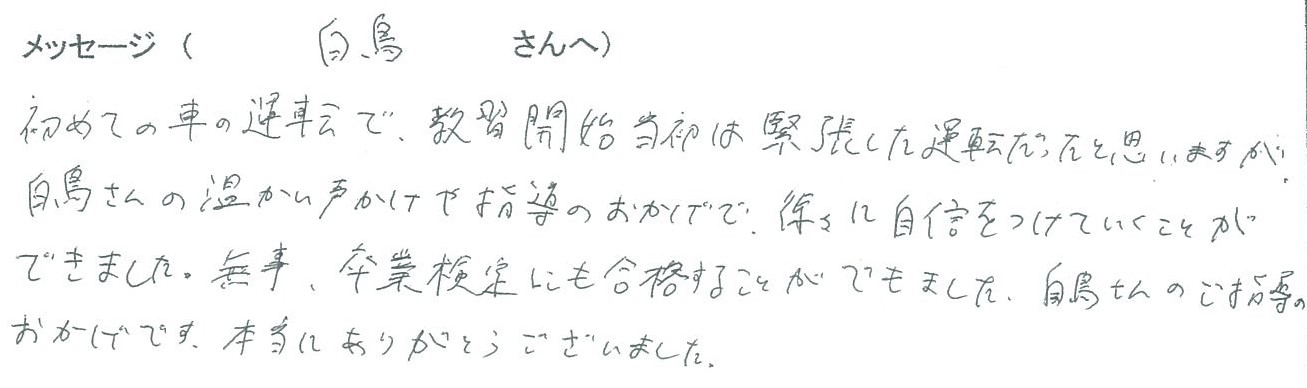 メッセージ（ 白鳥 さんへ）
初めての車の運転で、教習開始当初は緊張した運転だったと思いますが、
白鳥さんの温かい声かけや指導のおかげで、徐々に自信をつけていくことが
できました。無事、卒業検定にも合格することができました。白鳥さんのご指導の
おかげです。本当にありがとうございました。